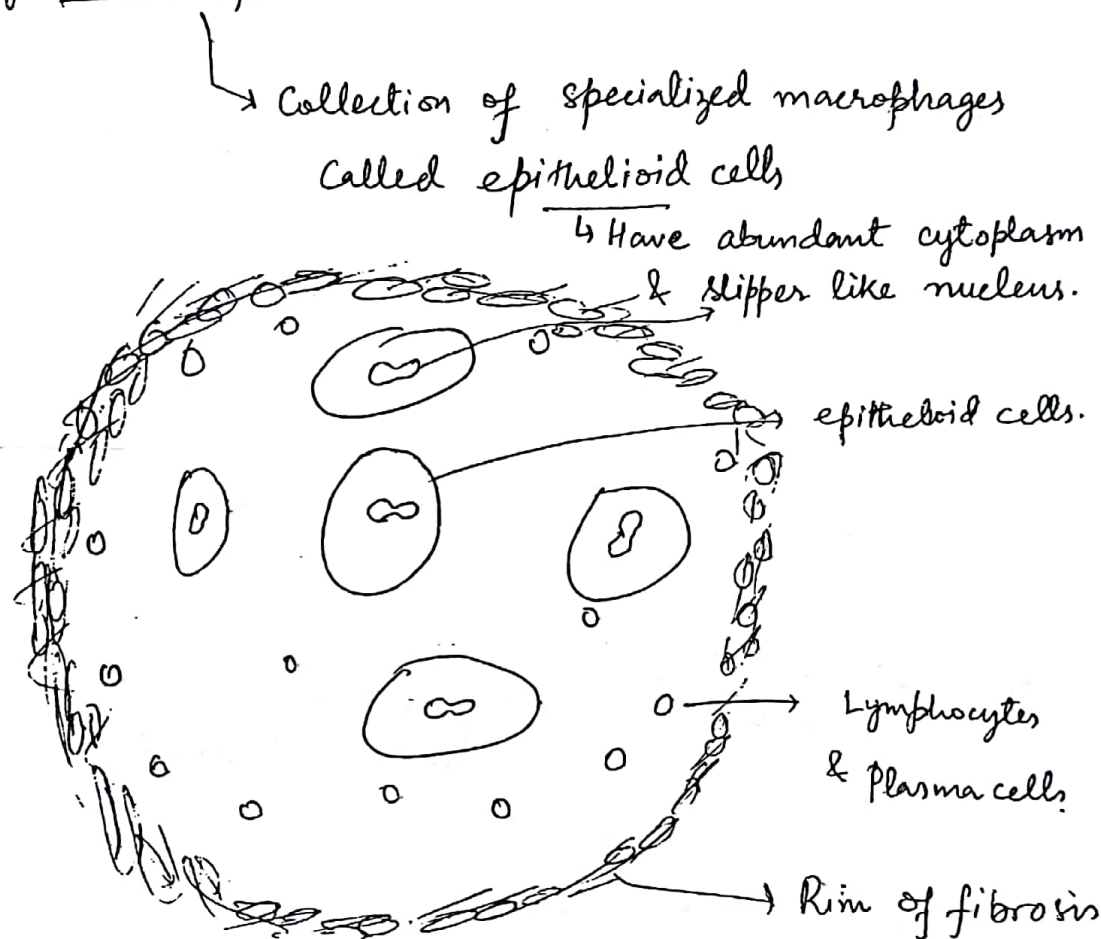 Collection of specialized macrophages
Called epithelioid cells
↳ Have abundant cytoplasm
& slipper like nucleus.
epitheloid cells.
Lymphocytes
& Plasma cells
Rim of fibrosis